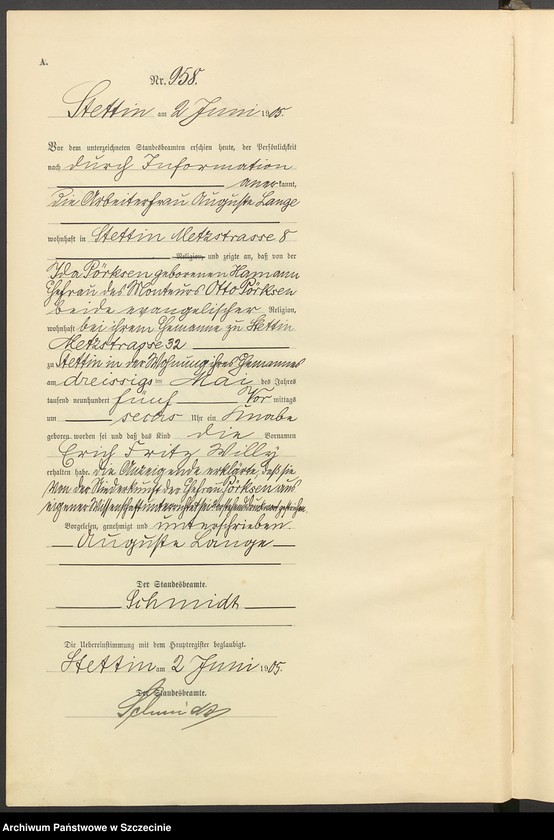 A.
Nr. 958.
Stettin am 2 Juni 1905.
Vor dem unterzeichneten Standesbeamten erschien heute, der Persönlichkeit
nach durch Information
anerkannt,
die Arbeiterfrau Auguste Lange
wohnhaft in Stettin Metzstrasse 8
Religion, und zeigte an, daß von der
Ida Pörksen geborenen Hamann
Ehefrau des Monteurs Otto Pörksen
beide evangelischer Religion,
wohnhaft bei ihrem Ehemanne zu Stettin
Metzstrasse 32
zu Stettin in der Wohnung ihres Ehemannes
am dreissigsten Mai des Jahres
tausend neunhundert fünf Vormittags
um sechs Uhr ein Knabe
geboren worden sei und daß das Kind die Vornamen
Erich Fritz Willy
erhalten habe. Die Anzeigende erklärte, daß sie
von der Niederkunft der Ehefrau Pörksen aus
eigener Wissenschaft unterrichtet sei.
Vorgelesen, genehmigt und unterschrieben
Auguste Lange
Der Standesbeamte.
Schmidt
Die Uebereinstimmung mit dem Hauptregister beglaubigt.
Stettin am 2 Juni 1905.
Der Standesbeamte.
Schmidt
Archiwum Państwowe w Szczecinie